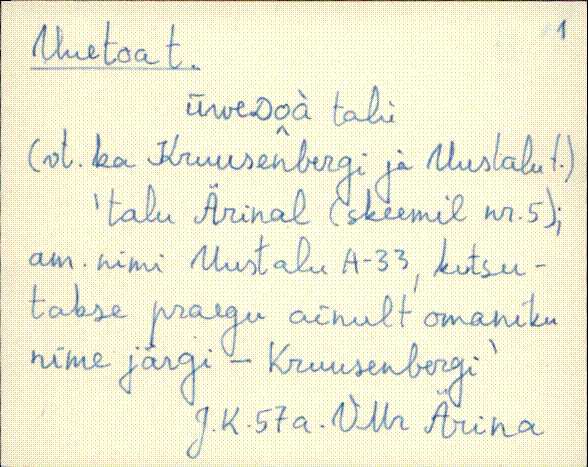 1
Uuetoa t.
ūweᴅoà talu
(vt. ka Kruusenbergi ja Uustalu t.)
'talu Ärinal (skeemil nr. 5);
am. nimi Uustalu A-33, kutsu-
takse praegu ainult omaniku
nime järgi – Kruusenbergi'
J.K. 57a. VMr Ärina